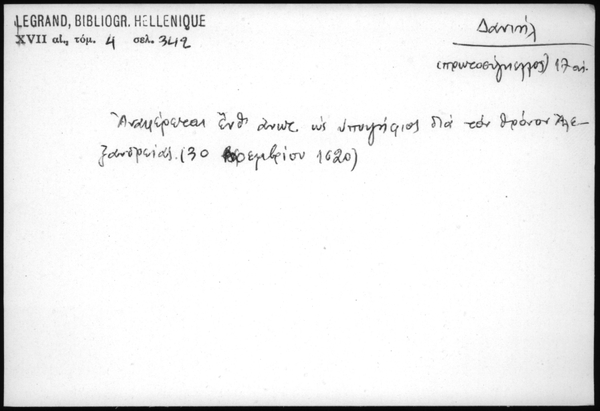 LEGRAND, BIBLIOGR. HELLENIQUE
XVII αἰ., τόμ. 4 σελ. 342
Δανιήλ
(πρωτοσύγκελλος) 17 αἰ.
Ἀναφέρεται ἔνθ' ἀνωτ. ὡς ὑποψήφιος διὰ τὸν θρόνον Ἀλε-
ξανδρείας. (30 Νοεμβρίου 1620)